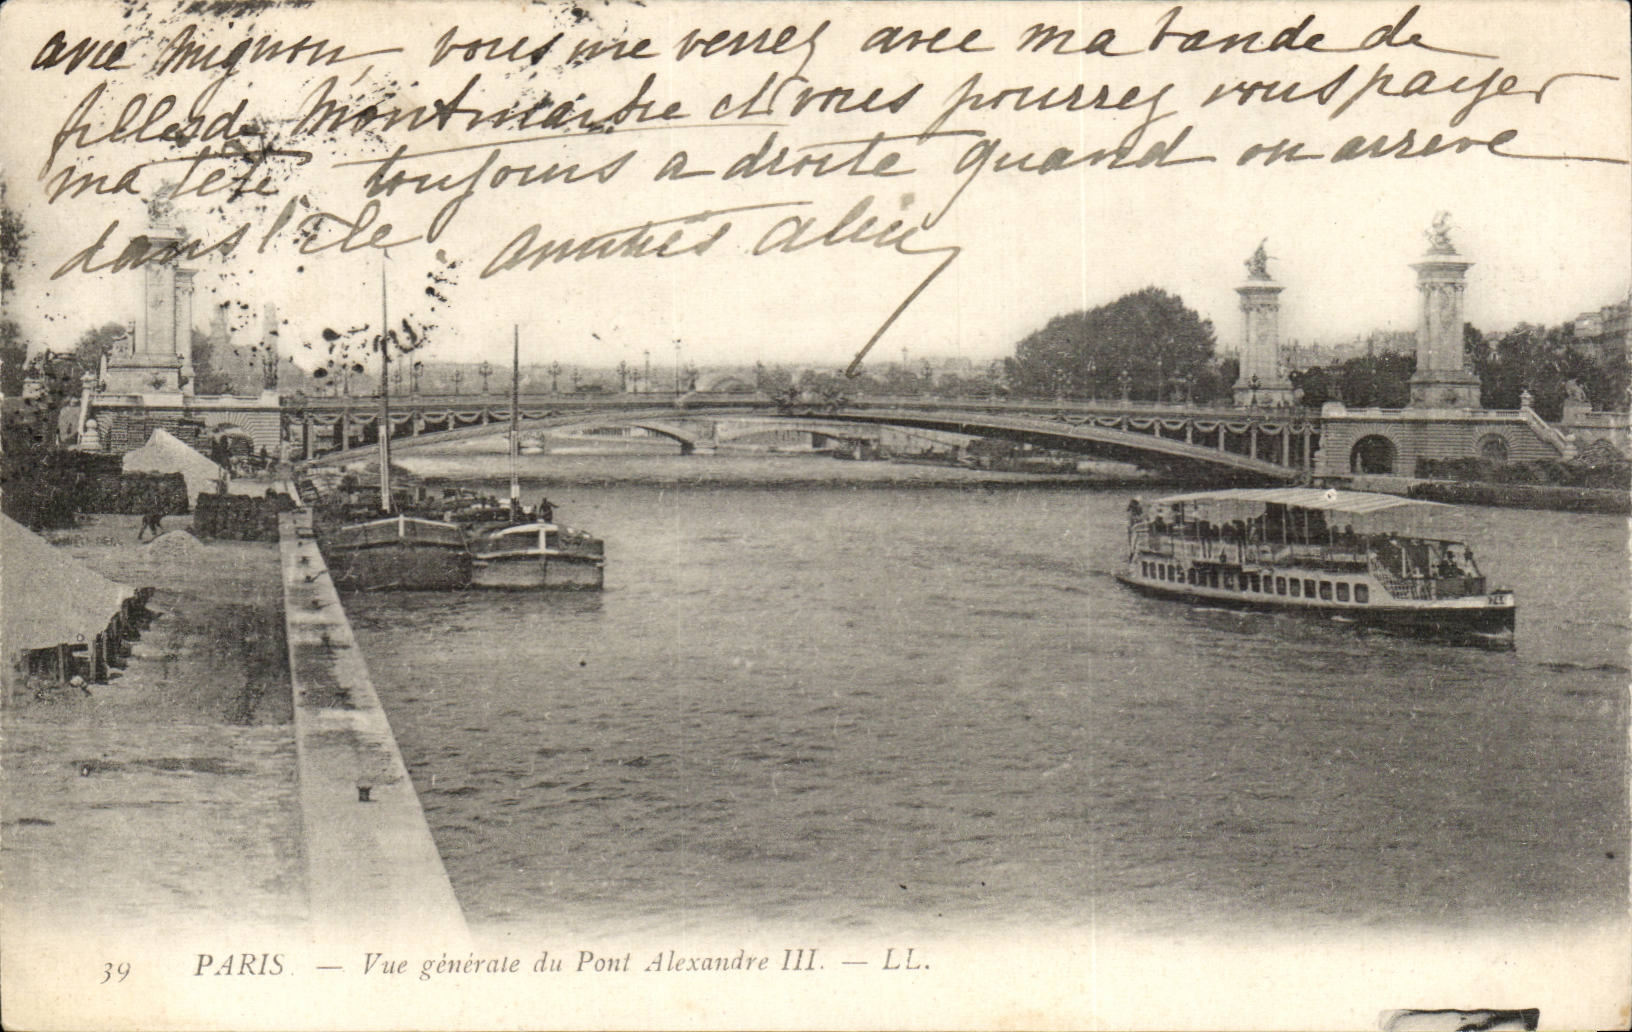 avec Mignon, vous me verrez avec ma bande de
filles de Montmartre et vous pourrez vous payer
ma tête, toujours a droite quand on arrive
dans l'île. amitiés
39 PARIS. — Vue générale du Pont Alexandre III. — LL.